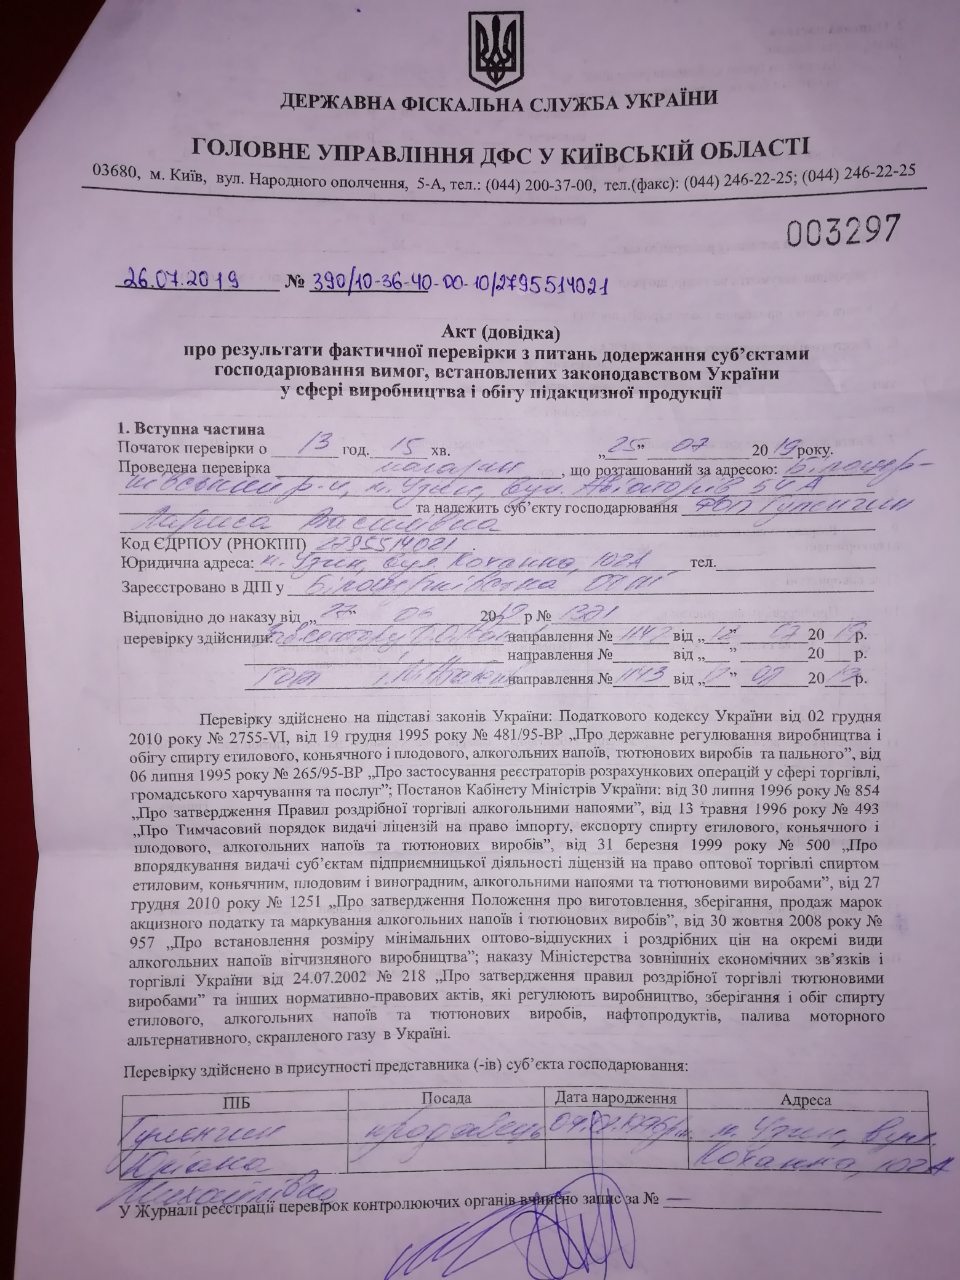 ДЕРЖАВНА ФІСКАЛЬНА СЛУЖБА УКРАЇНИ
ГОЛОВНЕ УПРАВЛІННЯ ДФС У КИЇВСЬКІЙ ОБЛАСТІ
03680, м. Київ, вул. Народного ополчення, 5-А, тел.: (044) 200-37-00, тел.(факс): (044) 246-22-25; (044) 246-22-25
003297
26.07.2019 № 390/10-36-40-00-10/2795514021
Акт (довідка)
про результати фактичної перевірки з питань додержання суб’єктами
господарювання вимог, встановлених законодавством України
у сфері виробництва і обігу підакцизної продукції
1. Вступна частина
Початок перевірки о 13 год. 15 хв. „25” 07 2019 року.
Проведена перевірка магазин, що розташований за адресою: Білоцер-
ківський р-н, м. Узин, вул. Авіаторів 54А
та належить суб’єкту господарювання ФОП
Лариса Василівна
Код ЄДРПОУ (РНОКПП) 2795514021
Юридична адреса: м. Узин, вул. 102А тел.
Зареєстровано в ДПІ у Білоцерківська
Відповідно до наказу від „27” 06 2019 р № 1321
перевірку здійснили: направлення № 1142 від „ ” 07 2019 р.
направлення № від „ ” 20 р.
направлення № 1143 від „ ” 07 20 р.
Перевірку здійснено на підставі законів України: Податкового кодексу України від 02 грудня
2010 року № 2755-VI, від 19 грудня 1995 року № 481/95-ВР „Про державне регулювання виробництва і
обігу спирту етилового, коньячного і плодового, алкогольних напоїв, тютюнових виробів та пального”, від
06 липня 1995 року № 265/95-ВР „Про застосування реєстраторів розрахункових операцій у сфері торгівлі,
громадського харчування та послуг”; Постанов Кабінету Міністрів України: від 30 липня 1996 року № 854
„Про затвердження Правил роздрібної торгівлі алкогольними напоями”, від 13 травня 1996 року № 493
„Про Тимчасовий порядок видачі ліцензій на право імпорту, експорту спирту етилового, коньячного і
плодового, алкогольних напоїв та тютюнових виробів”, від 31 березня 1999 року № 500 „Про
впорядкування видачі суб’єктам підприємницької діяльності ліцензій на право оптової торгівлі спиртом
етиловим, коньячним, плодовим і виноградним, алкогольними напоями та тютюновими виробами”, від 27
грудня 2010 року № 1251 „Про затвердження Положення про виготовлення, зберігання, продаж марок
акцизного податку та маркування алкогольних напоїв і тютюнових виробів”, від 30 жовтня 2008 року №
957 „Про встановлення розміру мінімальних оптово-відпускних і роздрібних цін на окремі види
алкогольних напоїв вітчизняного виробництва”; наказу Міністерства зовнішніх економічних зв’язків і
торгівлі України від 24.07.2002 № 218 „Про затвердження правил роздрібної торгівлі тютюновими
виробами” та інших нормативно-правових актів, які регулюють виробництво, зберігання і обіг спирту
етилового, алкогольних напоїв та тютюнових виробів, нафтопродуктів, палива моторного
альтернативного, скрапленого газу в Україні.
Перевірку здійснено в присутності представника (-ів) суб’єкта господарювання:
ПІБ Посада Дата народження Адреса
продавець м. Узин, вул.
102А
Михайлівна
У Журналі реєстрації перевірок контролюючих органів вчинено запис за № —